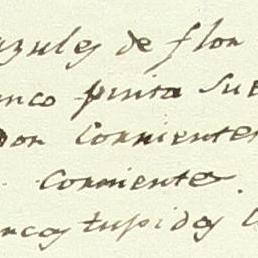 azules de flor
anco pinta Sue
Don Corrientes
Corriente.
ncos tupidos